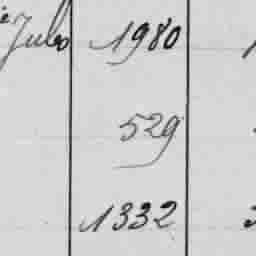 Jules 1980
529
1332